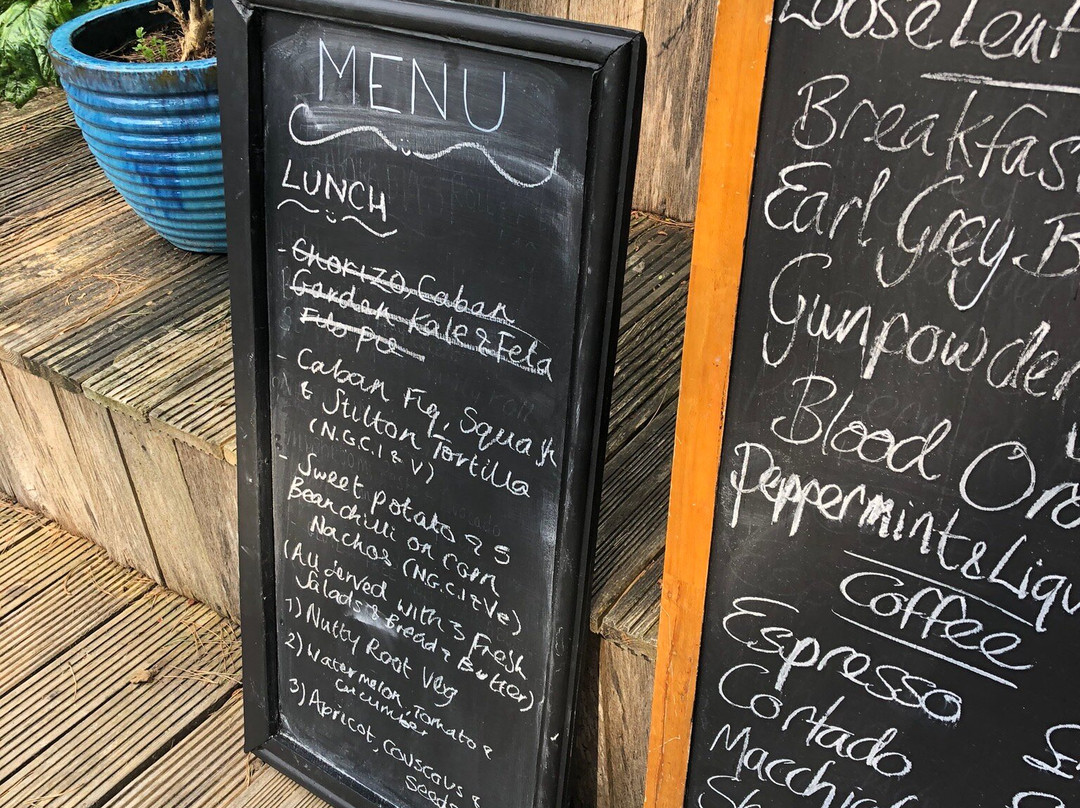 MENU
LUNCH
- Chorizo, Caban
Garden Kale & Feta
Filo Pie
- Caban Fig, Squash
& Stilton Tortilla
(N.G.C.I & V)
- Sweet potato & 5
Bean chilli on corn
Nachos (N.G.C.I & Ve)
(All served with 3 Fresh
Salads & Bread & Butter)
1) Nutty Root Veg
2) Watermelon, Tomato &
Cucumber
3) Apricot, Couscous &
Seeds
Loose Leaf
Breakfas
Earl Grey B
Gunpowder
Blood Ora
Peppermint & Liqu
Coffee
Espresso
Cortado
Macchia